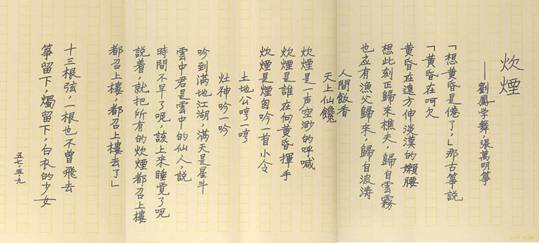 炊煙
——劉鳳學舞，張萬明箏
「想黃昏是倦了，」那古箏說
「黃昏在呵欠
黃昏在遠方伸淡漠的懶腰
想此刻正歸來樵夫，歸自雲霧
也應有漁父歸來，歸自波濤
人間飯香
天上仙饞
炊煙是一聲空渺的呼喊
炊煙是誰在向黃昏揮手
炊煙是煙囪吟一首小令
土地公哼一哼
灶神吟一吟
吟到滿地江湖，滿天是星斗
雲中君是雲中的仙人，說
時間不早了呢，該上來睡覺了呢
說着，就把所有的炊煙都召上樓
都召上樓，都召上樓去了」
十三根弦，一根也不曾飛去
箏留下，燭留下，白衣的少女
五七・五・九